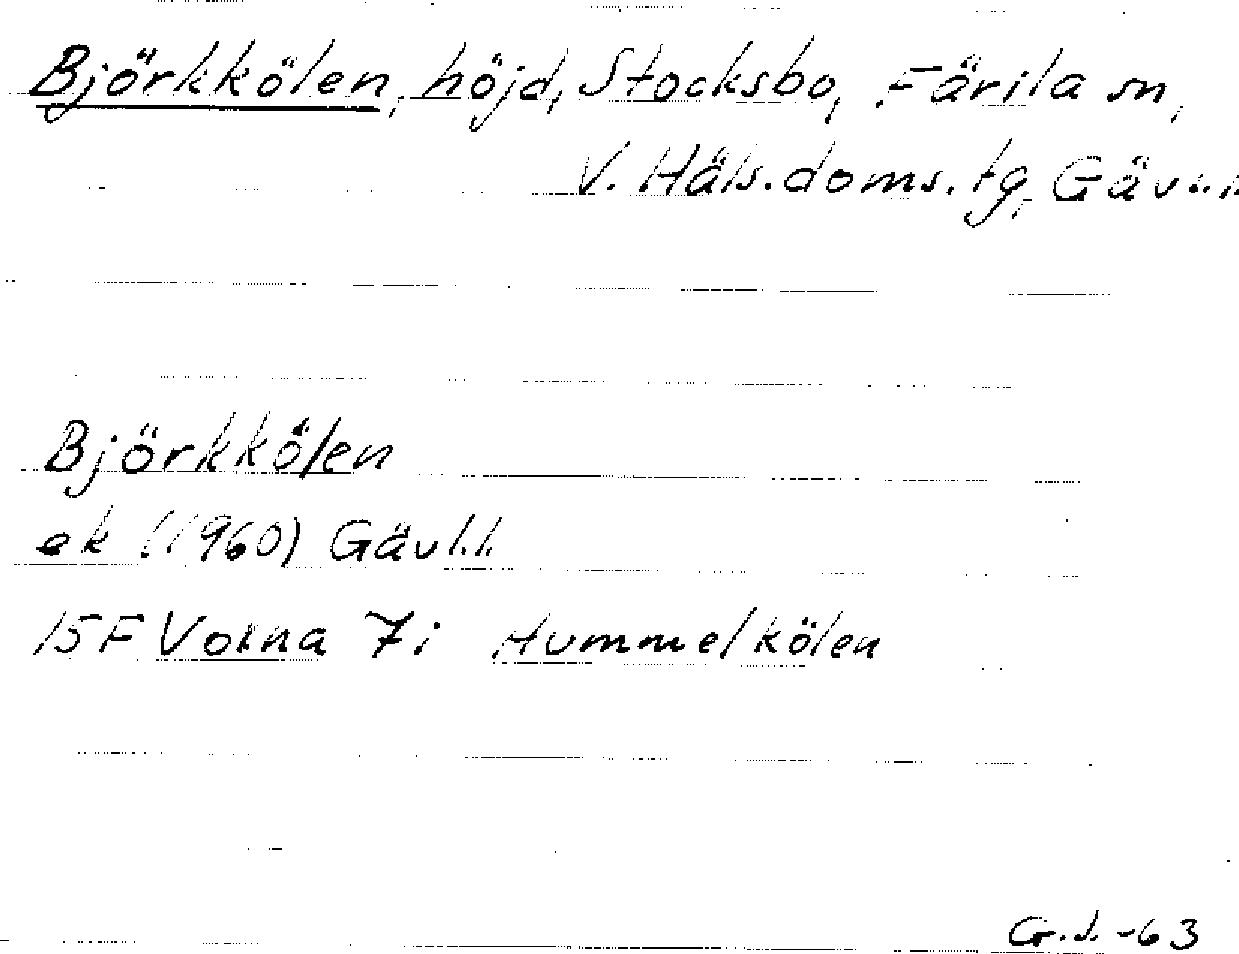 Björkkölen, höjd, Stocksbo, Färila sn,
V. Häls. doms. tg, Gävl.l.
Björkkölen
ek (1960) Gävl.l.
15F Voxna 7i Hummelkölen
G.J. -63